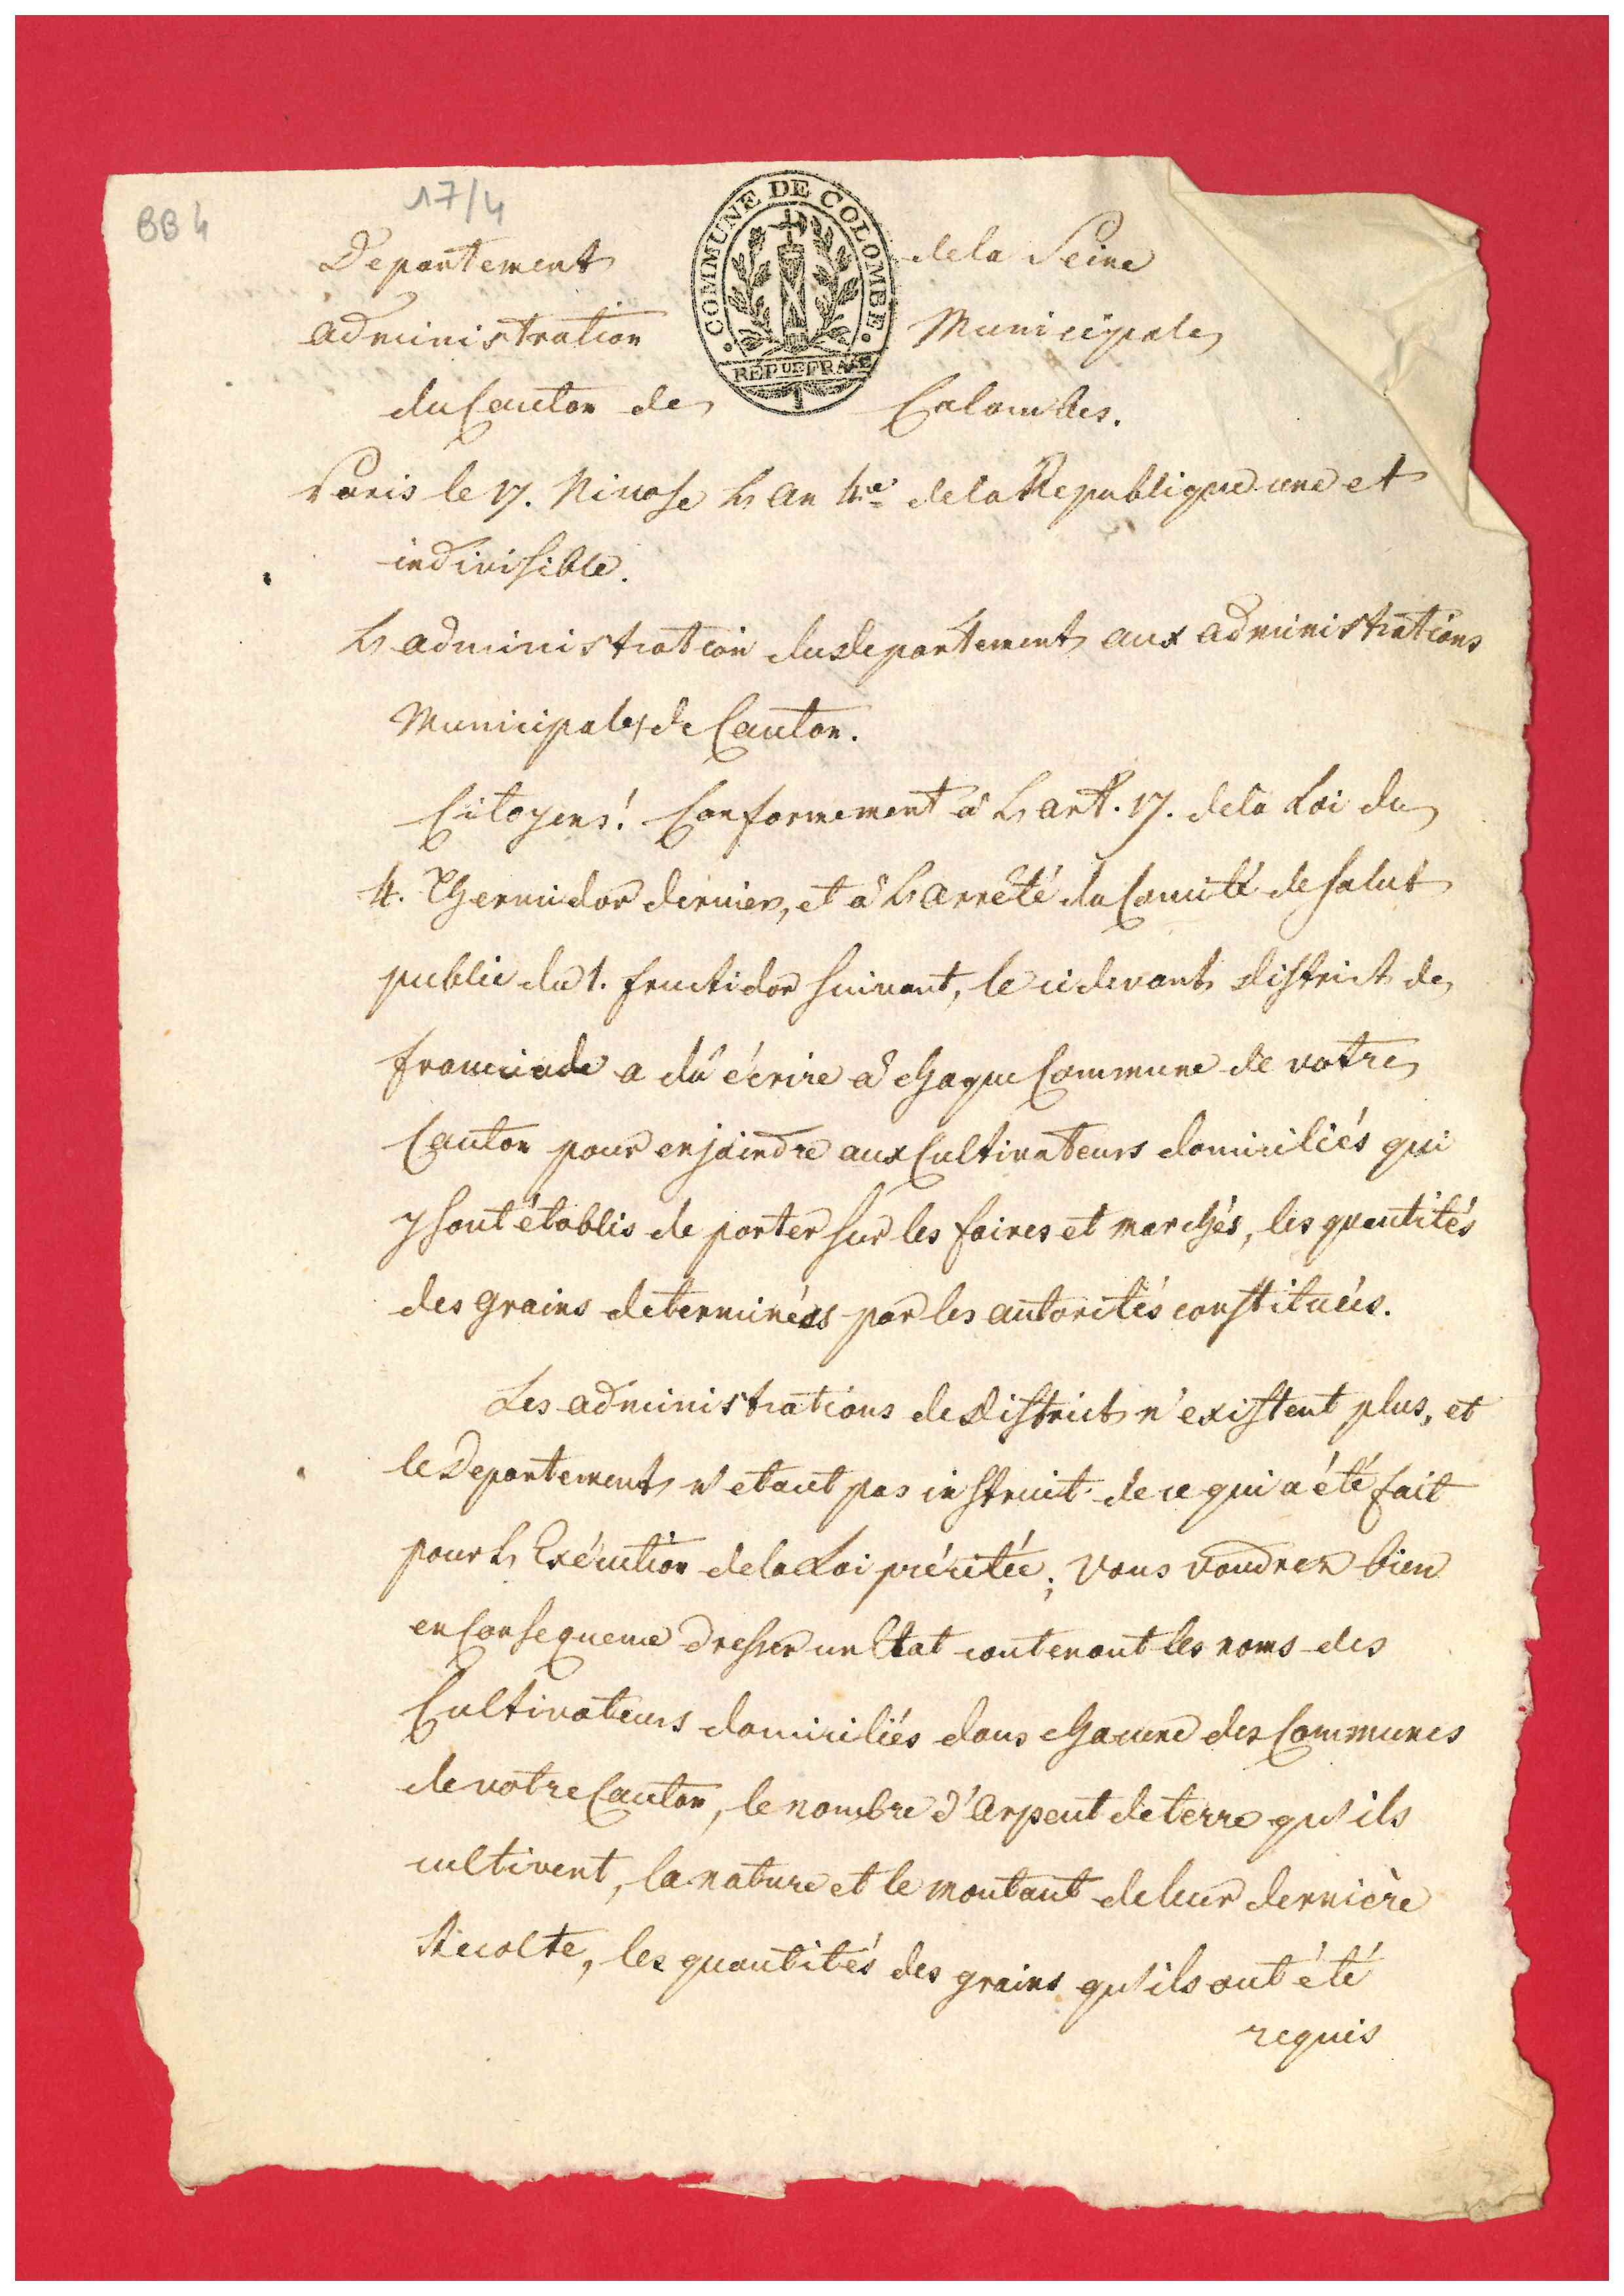 BB 4
17/4
COMMUNE DE COLOMBE
REP.UE FR.SE
Departement de la Seine
administration Municipale
du Canton de Colombes.
Paris le 17. Nivose L'an 4.e de la Republique une et
indivisible.
L'administration du departement aux administrations
Municipales de Canton.
Citoyens! Conformement à L'art. 17. de la Loi du
4. Thermidor dernier, et à L'arrêté du Comité de Salut
public du 1. fructidor suivant, le cidevant district de
franciade a dû écrire à chaque Commune de votre
Canton pour enjoindre aux Cultivateurs domiciliés qui
y sont établis de porter sur les foires et marchés, les quantités
des grains determinées par les autorités constituées.
Les administrations de district n'existent plus, et
le Departement n'etant pas instruit de ce qui a été fait
pour L'Exécution de la Loi précitée; vous voudrez bien
en Consequence dresser un Etat contenant les noms des
Cultivateurs domiciliés dans chacune des Communes
de votre Canton, le nombre d'arpent de terre qu'ils
cultivent, la nature et le montant de leur dernière
Récolte, les quantités des grains qu'ils ont été
requis